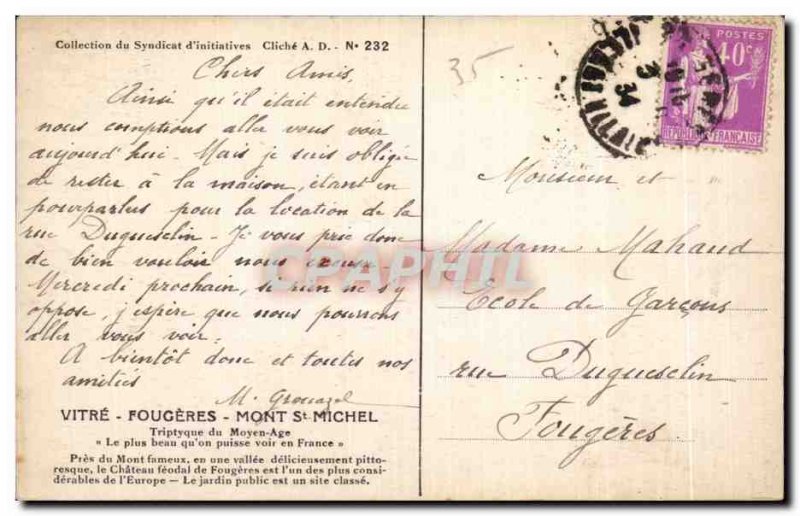 Collection du Syndicat d'initiatives Cliché A. D. - N° 232
Chers Amis,
Ainsi qu'il était entendu
nous comptions aller vous voir
aujourd'hui. Mais je suis obligée
de rester à la maison, étant en
pourparlers pour la location de la
rue Duguesclin. Je vous prie donc
de bien vouloir nous excuser
Mercredi prochain, si rien ne s'y
oppose, j'espère que nous pourrons
aller vous voir.
A bientôt donc et toutes nos
amitiés
M. Grouazel
VITRÉ - FOUGÈRES - MONT St-MICHEL
Triptyque du Moyen-Age
« Le plus beau qu'on puisse voir en France »
Près du Mont fameux, en une vallée délicieusement pitto-
resque, le Château féodal de Fougères est l'un des plus consi-
dérables de l'Europe — Le jardin public est un site classé.
35
POSTES
40 c.
REPUBLIQUE FRANÇAISE
34
Monsieur et
Madame Mahaud
École de Garçons
rue Duguesclin
Fougères.
CPAPHIL